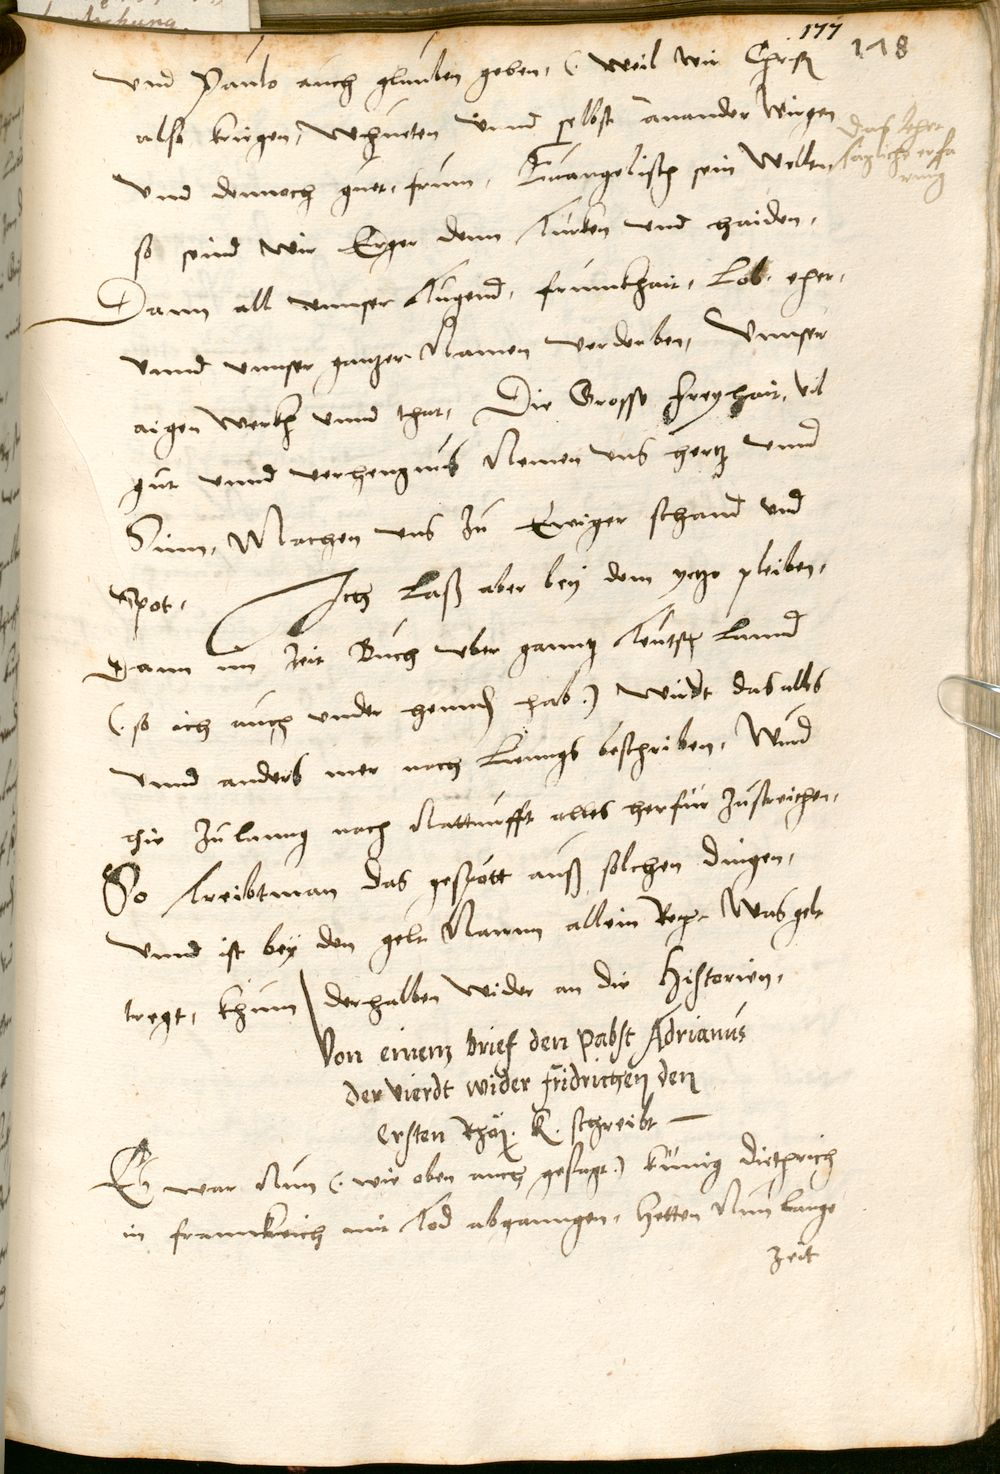 177
118
vnd Paulo auch glauben geben, (: weil wir Christen
also kriegen, whueten vnnd selbst ananander würgen
vnd dennoch guet, frum, Euangelisch sein Wellen
das lehrt
tägliche erfa
rung
so seind wir Erger denn Türken vnd haiden,
Dann all vnnser Tugend, frumkhait, Lob, eher,
vnnd vnnser ganzer Namen verderben, Vnnser
aigen Werkh vnnd that, Die Grosse freyhait, vil
gut vnnd verhengnus Nemen vns hertz vnnd
Sinn, Machen vns zu Ewiger schand vnd
Spot, Ich Laß aber bey dem yetzo pleiben,
Dann im Zeit Buch vber ganntz Teutsch Lannd
(: so ich auch vnder hennden hab:) würdt das alles
vnnd anders mer nach Lenngs beschriben, Wurd
hie zu lanng nach Notturfft alles herfür zustreichen,
So treibt man das gespött auß solchen dingen,
vnnd ist bey den gelt Narren allein Recht Was gelt
tregt, khum derhalben wider an die Historien,
Von einem brief den Pabst Adrianus
der vierdt wider fridrichen den
Ersten Rhö. K. schreibt
Es war Nun (: wie oben auch gesagt:) künig dietrich
in frannkreich mit Tod abganngen, hetten Nun lange
zeit